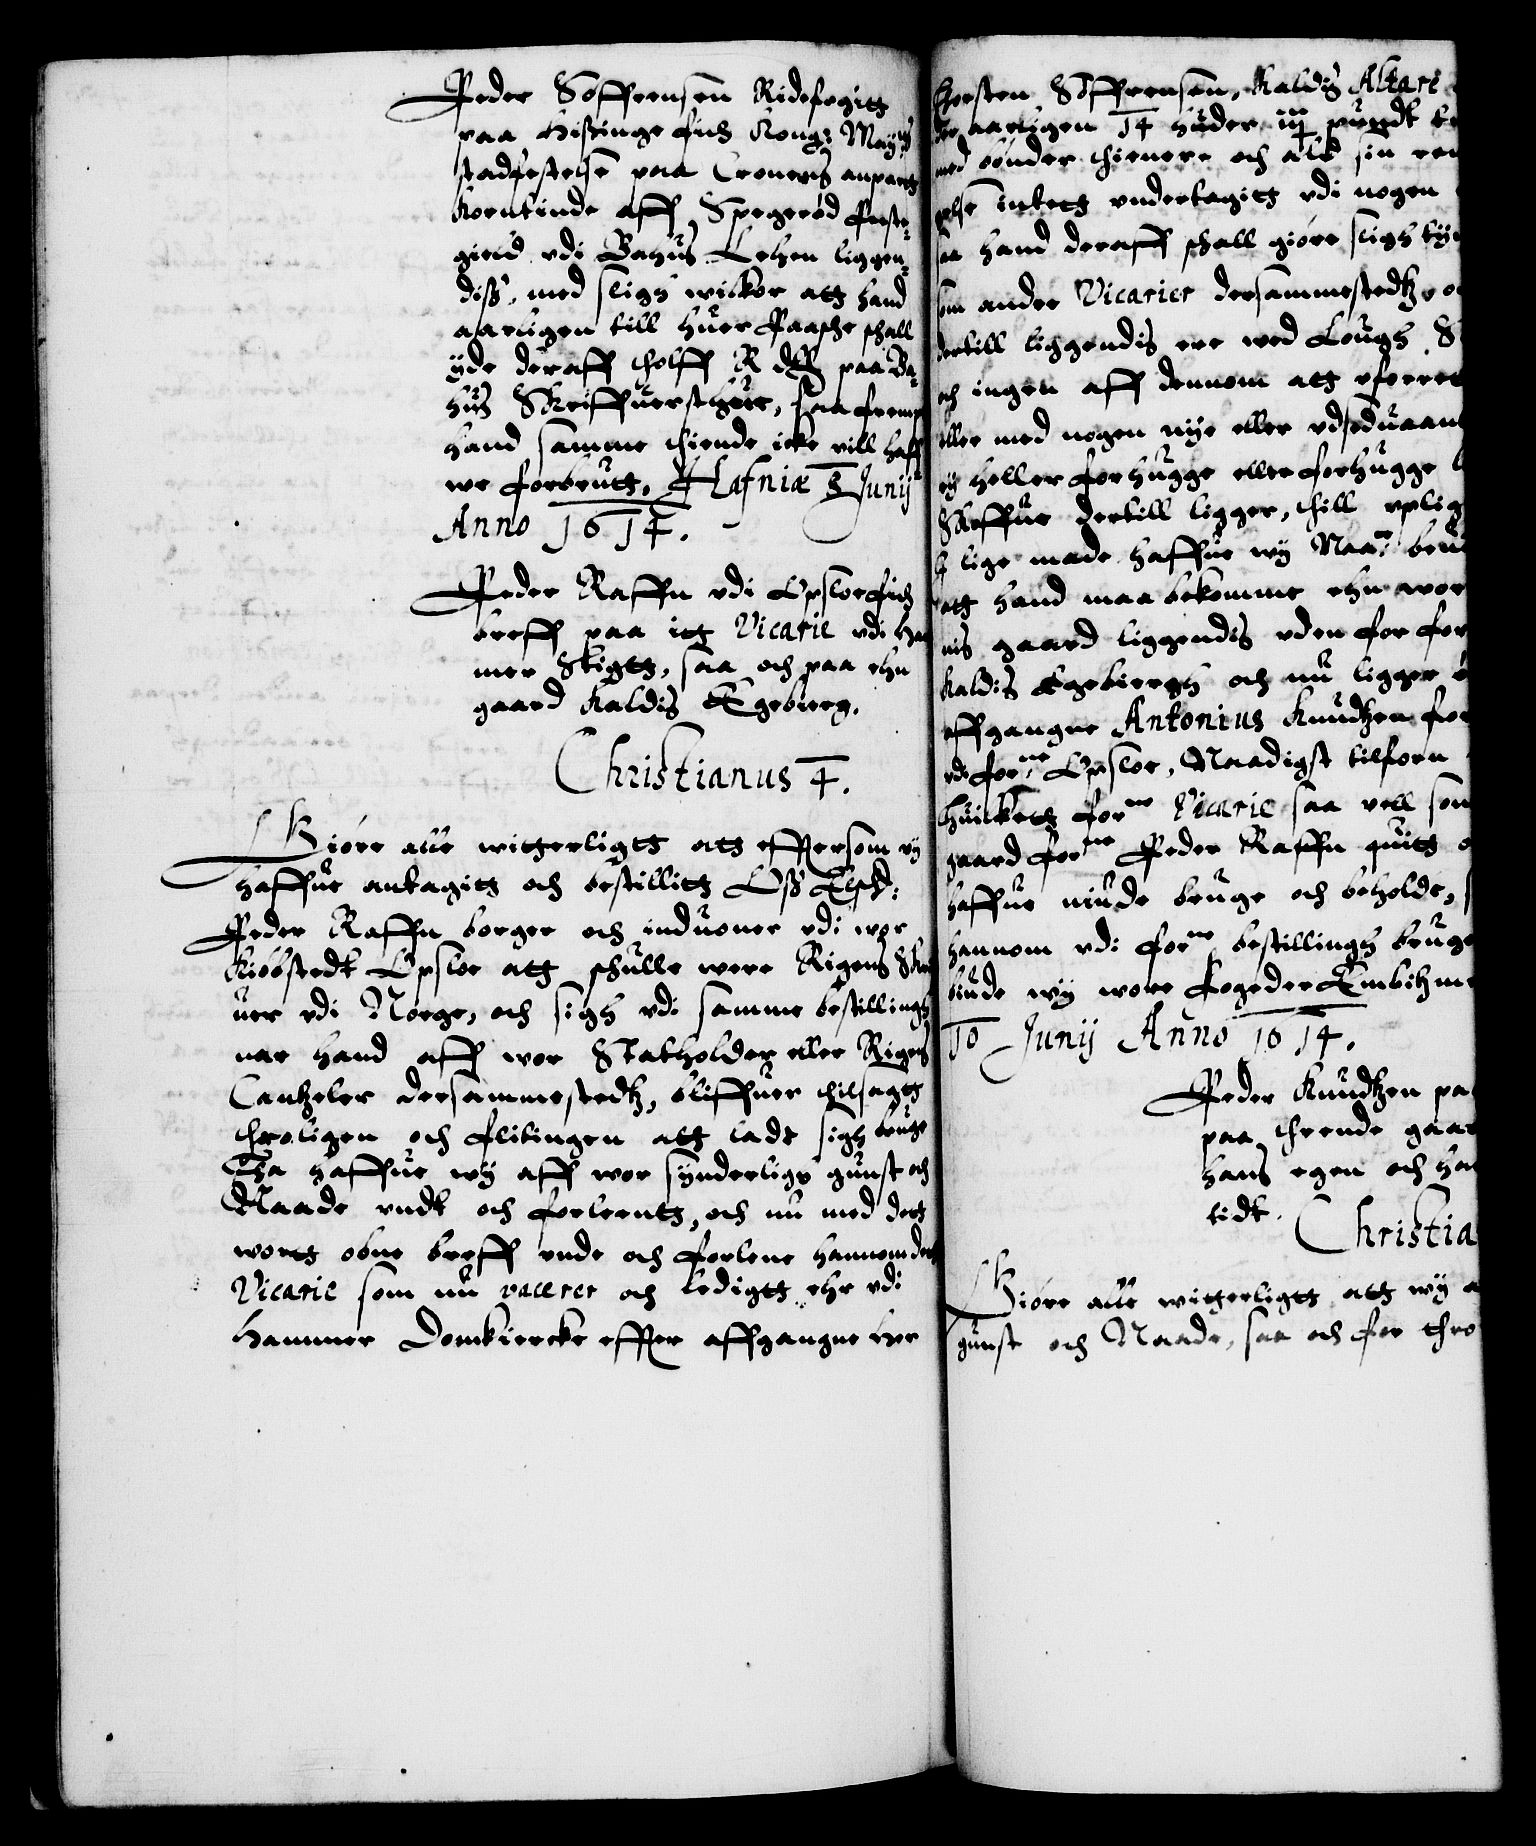 Peder Søffrensen Ridefogitt
paa Hissinge fich Kong: May:ts
stadfestelse paa Cronens anpart
Korntinde aff Spegerød Preste-
gield vdi Bahus Lehen liggen-
diss, med sligh wilkor att hand
aarligen till huer Paasche schall
yde deraff tholff R dlr paa Ba-
hus Skriffuerstue, saa frempt
hand samme thiende icke vill haff
we forbrutt. Hafniæ 3 Junij
Anno 1614.
Peder Raffn vdi Opsloe fich
breff paa itt Vicarie vdi Ham
mer Stigtt, saa och paa ehn
gaard Kaldis Egebierg.
Christianus 4.
Giøre alle witterligtt att effterson wy
haffue antagitt och bestillitt Oss Elsk:
Peder Raffn borger och induoner vdi wor
Kiøbstedt Opsloe att schulle were Rigens Skri
uer vdi Norge, och sigh vdi samme bestillingh
nar hand aff wor Statholder eller Rigens
Cantzeler dersammestedtz, bliffuer tilsagtt
troligen och flittingen att lade sigh bruge
Tha haffue wy aff wor synderligh gunst och
Naade vndt och forlentt, och nu med dett
wortt obne breff vnde och forlene hannom dett
Vicarie som nu vacerer och ledigtt ehr vdi
Hammer Domkiercke effter affgangne her
Thorsten Søffrensen, Kaldis Altare
der aarligen 14 huder iiij pundt
med bønder thienere och ald sin ren
gelse inthett vndertagitt vdi nogen
saa hand deraff schall giøre sligh tyn
som andre Vicarier dersammestedtz, o
dertill liggendis ere wed Lough S
och ingen aff dennom att vforret
eller med nogen nye eller vdseduaan
ey heller forhugge eller forhugge l
Skoffue dertill ligger, thill vplig
I lige made haffue wy Naa: beu
att hand maa bekomme ehn wor
nis gaard liggendis vden for for
Kaldis Egebiergh och nu ligger ø
affgangne Antonius Knudtzen for
vdi for:ne Opsloe, Naadigst tilforn
huilckett for:ne Vicarie saa vell som
gaard for:ne Peder Raffn quitt o
haffue niude bruge och beholde, s
hannom vdi for:ne bestillingh bruge
biude wy wore fogeder Embitzme
10 Junij Anno 1614.
Peder Knudtzen pa
paa trende gaar
hans egen och ha
tidt.
Christia
Giøre alle witterligtt att wy a
gunst och Naade, saa och for thro